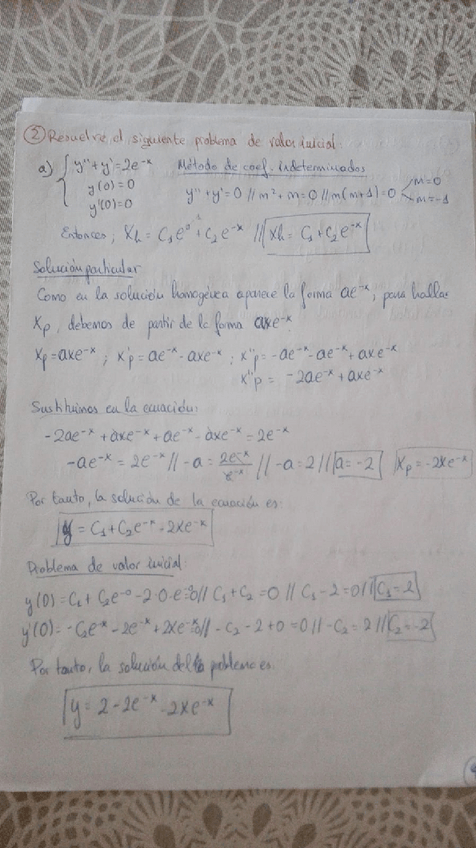 ② Resuelve el siguiente problema de valor inicial:
a) { y'' + y' = 2e^-x Método de coef. indeterminados
y(0) = 0
y'(0) = 0 y'' + y' = 0 // m² + m = 0 // m(m+1) = 0 < m=0 m=-1
Entonces; Xh = C₁e⁰ + C₂e^-x // Xh = C₁ + C₂e^-x
Solución particular
Como en la solución homogénea aparece la forma ae^-x, para hallar
Xp, debemos de partir de la forma axe^-x
Xp = axe^-x ; X'p = ae^-x - axe^-x ; X''p = -ae^-x - ae^-x + axe^-x
X''p = -2ae^-x + axe^-x
Sustituimos en la ecuación:
-2ae^-x + axe^-x + ae^-x - axe^-x = 2e^-x
-ae^-x = 2e^-x // -a = 2e^-x/e^-x // -a = 2 // a = -2 Xp = -2xe^-x
Por tanto, la solución de la ecuación es:
y = C₁ + C₂e^-x - 2xe^-x
Problema de valor inicial:
y(0) = C₁ + C₂e^-0 - 2·0·e^-0 // C₁ + C₂ = 0 // C₁ - 2 = 0 // C₁ = 2
y'(0) = -C₂e^-x - 2e^-x + 2xe^-x = 0 // -C₂ - 2 + 0 = 0 // -C₂ = 2 // C₂ = -2
Por tanto, la solución del problema es:
y = 2 - 2e^-x - 2xe^-x